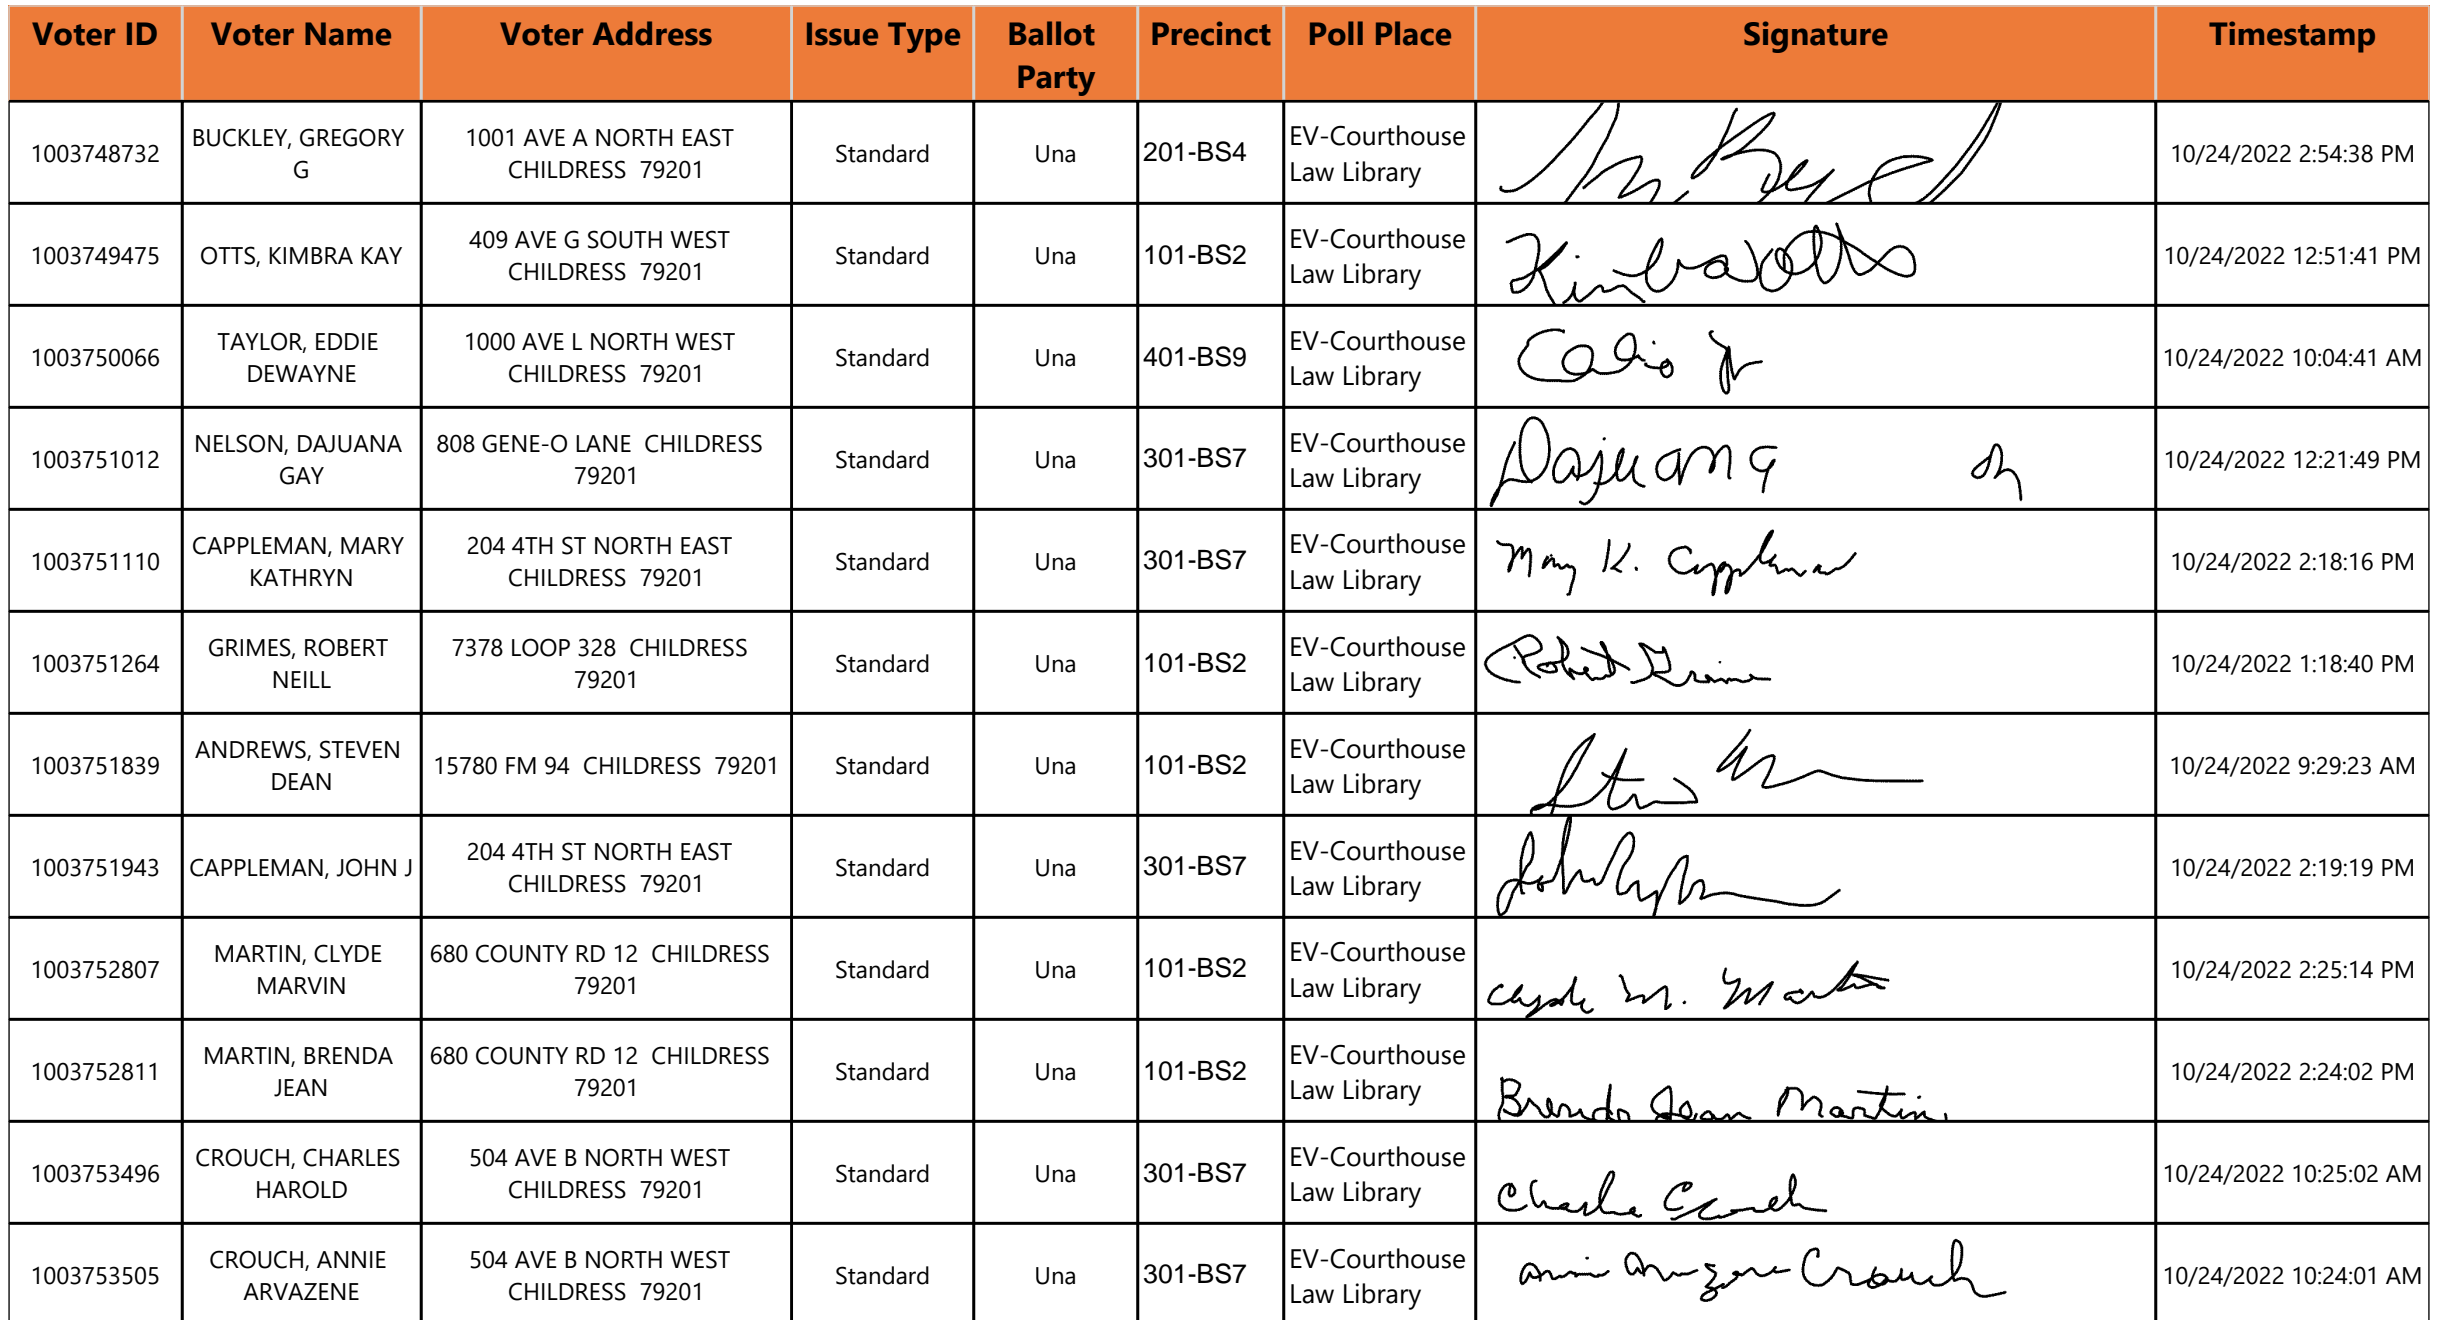 Voter ID Voter Name Voter Address Issue Type Ballot Party Precinct Poll Place Signature Timestamp
1003748732 BUCKLEY, GREGORY G 1001 AVE A NORTH EAST CHILDRESS 79201 Standard Una 201-BS4 EV-Courthouse Law Library 10/24/2022 2:54:38 PM
1003749475 OTTS, KIMBRA KAY 409 AVE G SOUTH WEST CHILDRESS 79201 Standard Una 101-BS2 EV-Courthouse Law Library Kimbra Otts 10/24/2022 12:51:41 PM
1003750066 TAYLOR, EDDIE DEWAYNE 1000 AVE L NORTH WEST CHILDRESS 79201 Standard Una 401-BS9 EV-Courthouse Law Library 10/24/2022 10:04:41 AM
1003751012 NELSON, DAJUANA GAY 808 GENE-O LANE CHILDRESS 79201 Standard Una 301-BS7 EV-Courthouse Law Library Dajuana 10/24/2022 12:21:49 PM
1003751110 CAPPLEMAN, MARY KATHRYN 204 4TH ST NORTH EAST CHILDRESS 79201 Standard Una 301-BS7 EV-Courthouse Law Library Mary K. Cappleman 10/24/2022 2:18:16 PM
1003751264 GRIMES, ROBERT NEILL 7378 LOOP 328 CHILDRESS 79201 Standard Una 101-BS2 EV-Courthouse Law Library Robert Grimes 10/24/2022 1:18:40 PM
1003751839 ANDREWS, STEVEN DEAN 15780 FM 94 CHILDRESS 79201 Standard Una 101-BS2 EV-Courthouse Law Library 10/24/2022 9:29:23 AM
1003751943 CAPPLEMAN, JOHN J 204 4TH ST NORTH EAST CHILDRESS 79201 Standard Una 301-BS7 EV-Courthouse Law Library 10/24/2022 2:19:19 PM
1003752807 MARTIN, CLYDE MARVIN 680 COUNTY RD 12 CHILDRESS 79201 Standard Una 101-BS2 EV-Courthouse Law Library Clyde M. Martin 10/24/2022 2:25:14 PM
1003752811 MARTIN, BRENDA JEAN 680 COUNTY RD 12 CHILDRESS 79201 Standard Una 101-BS2 EV-Courthouse Law Library Brenda Jean Martin 10/24/2022 2:24:02 PM
1003753496 CROUCH, CHARLES HAROLD 504 AVE B NORTH WEST CHILDRESS 79201 Standard Una 301-BS7 EV-Courthouse Law Library Charles Crouch 10/24/2022 10:25:02 AM
1003753505 CROUCH, ANNIE ARVAZENE 504 AVE B NORTH WEST CHILDRESS 79201 Standard Una 301-BS7 EV-Courthouse Law Library Annie Arvazene Crouch 10/24/2022 10:24:01 AM